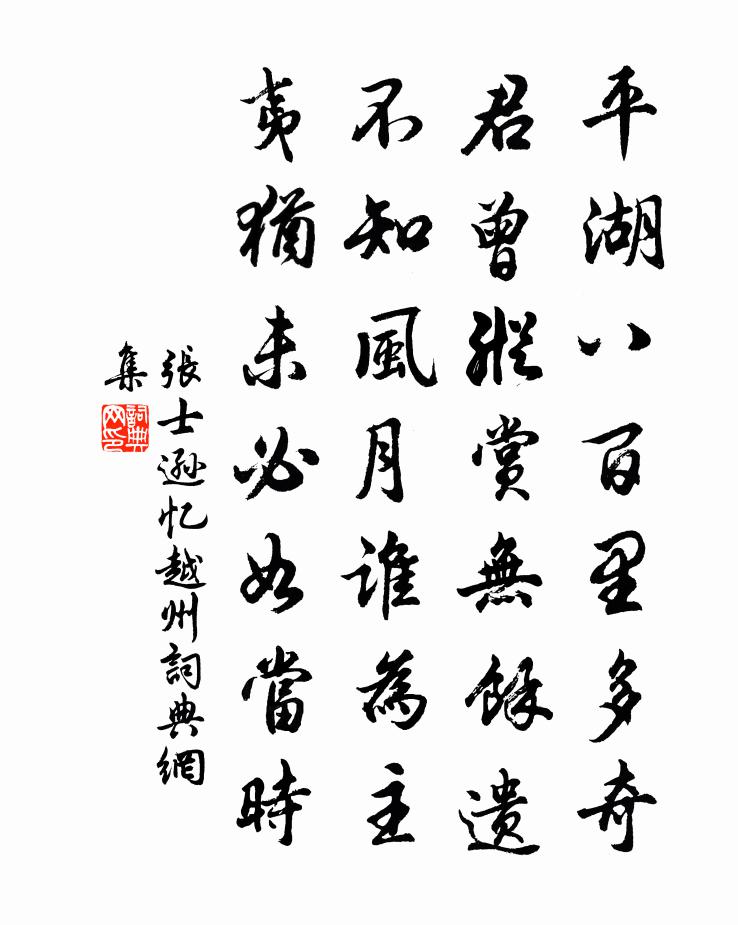 平湖八百里多奇
君曾縱賞無餘遗
不知風月誰為主
夷猶未必如當時
張士遜忆越州詞典網
集
詞典
网印